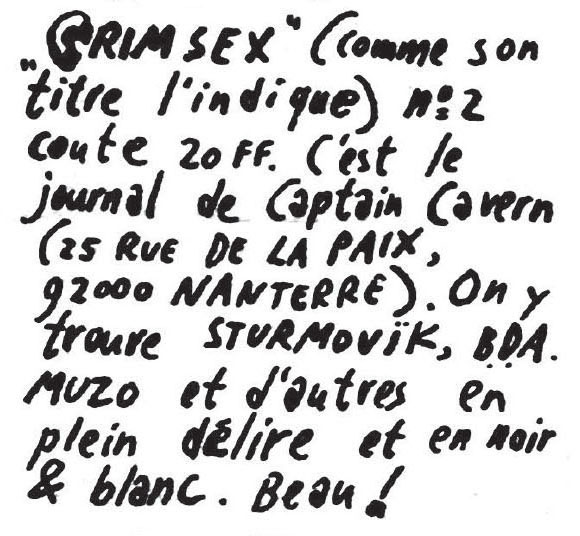 „CRIMSEX" (comme son
titre l'indique) nº2
coute 20 FF. C'est le
journal de Captain Cavern
(25 RUE DE LA PAIX,
92000 NANTERRE). On y
trouve STURMOVÏK, B.D.A.
MUZO et d'autres en
plein délire et en noir
& blanc. Beau!